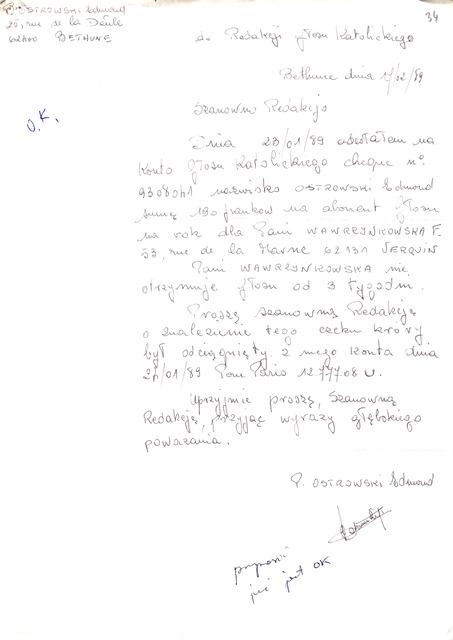 P. OSTROWSKI Edmond
25, rue de la Deule
62400 BETHUNE
34
do Redakcji Głosu Katolickiego
Bethune dnia 17/02/89
O.K.
Szanowna Redakcjo
Dnia 23/01/89 odesłałem na
Konto Głosu Katolickiego cheque n°
9308041 nazwisko OSTROWSKI Edmond
sumę 190 franków na abonent Głosu
na rok dla Pani WAWRZYNKOWSKA F.
53, rue de la Marne 62131 VERQUIN
Pani WAWRZYNKOWSKA nie
otrzymuje głosu od 3 tygodni.
Proszę szanowną Redakcję
o znalezienie tego czeku który
był odciągnięty z mego konta dnia
27/01/89 Pom Paris 12.777.08 U.
Uprzyjmie proszę, Szanowną
Redakcję, przyjąć wyrazy głębokiego
poważania.
P. OSTROWSKI Edmond
już jest OK